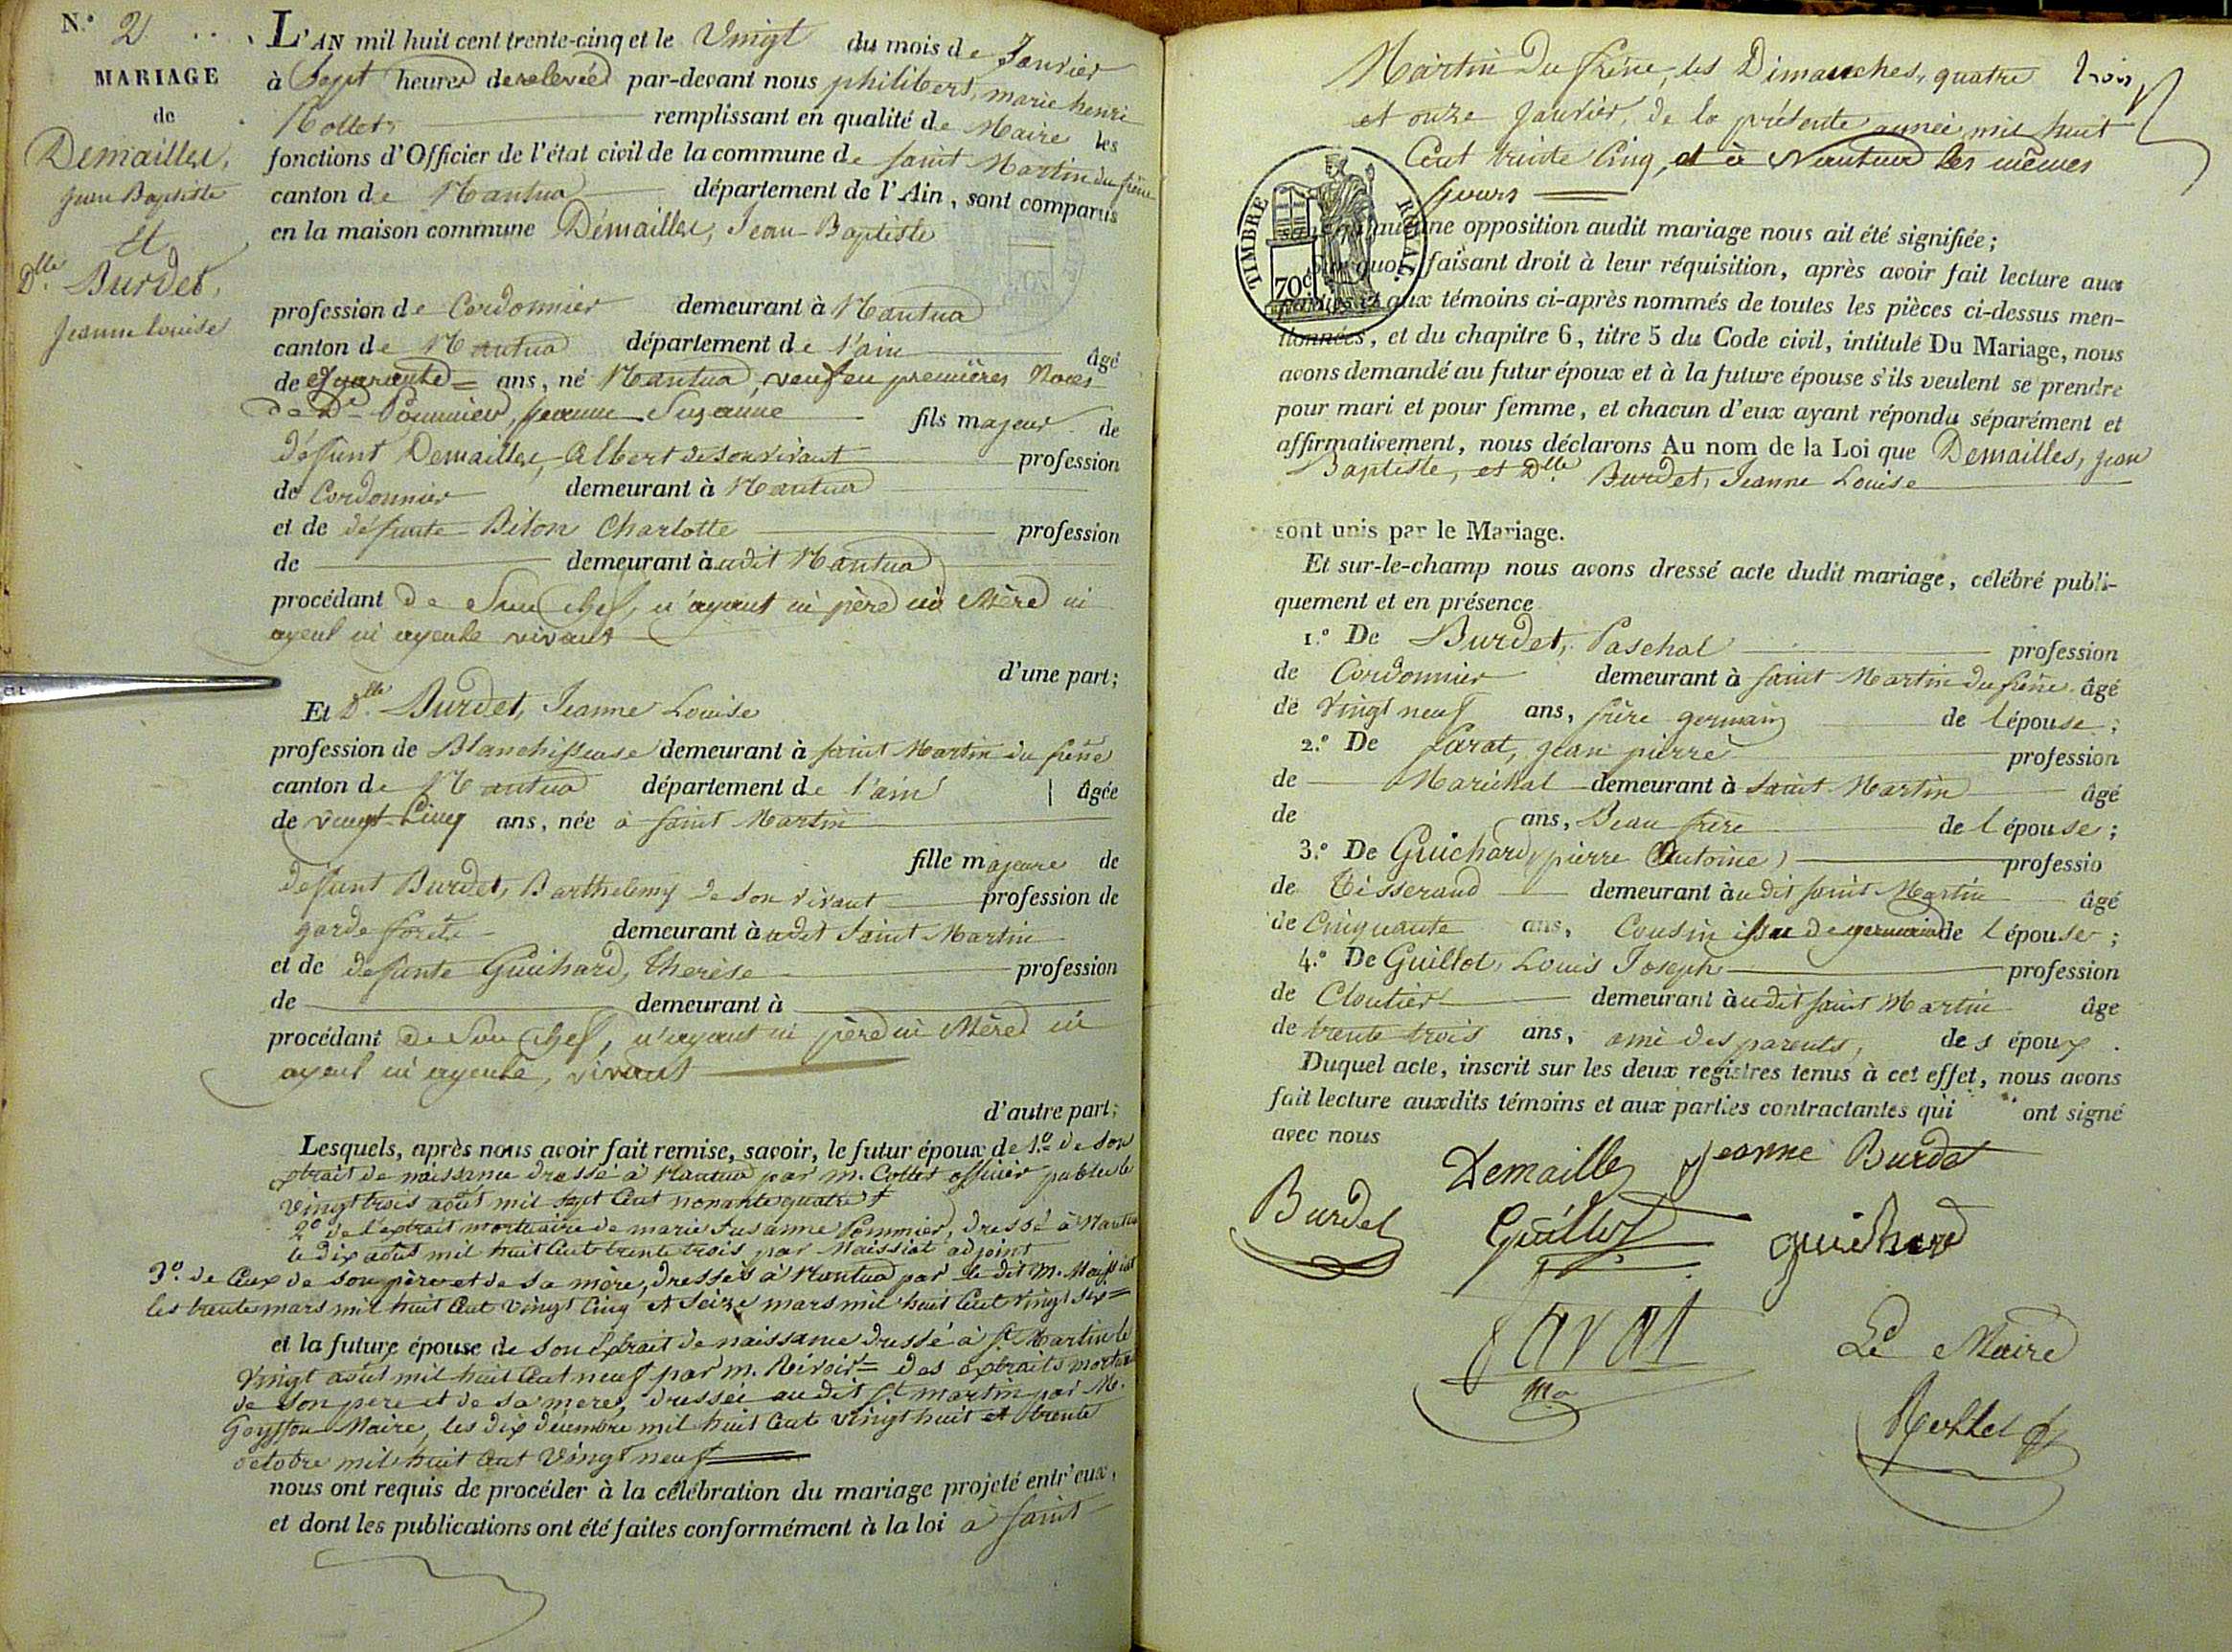 N.° 2
MARIAGE
de
Demailles,
Jean Baptiste
Et
Dlle Burdet,
Jeanne Louise
L'AN mil huit cent trente-cinq et le Vingt du mois de Janvier
à Sept heures de relevée par-devant nous philibert, marie henri
remplissant en qualité de Maire les
fonctions d'Officier de l'état civil de la commune de saint Martin du frêne
canton de Nantua département de l'Ain, sont comparus
en la maison commune Démailles, Jean-Baptiste
profession de Cordonnier demeurant à Nantua
canton de Nantua département de l'ain âgé
de quarante = ans, né Nantua, veuf en premières Noces
de De Pommier, Jeanne Suzanne fils majeur de
défunt Demailles, Albert de son vivant profession
de Cordonnier demeurant à Nantua
et de défunte Biton Charlotte profession
de demeurant à udit Nantua
procédant de Son chef, n'ayant ni père ni Mère ni
ayeul ni ayeule vivant
d'une part;
Et Dlle Burdet, Jeanne Louise
profession de Blanchisseuse demeurant à saint Martin du frêne
canton de Nantua département de l'ain âgée
de vingt-Cinq ans, née à saint Martin
fille majeure de
défunt Burdet, Barthelemy de son vivant profession de
garde forêts demeurant à udit Saint Martin
et de defunte Guichard, Therèse profession
de demeurant à
procédant de Son chef, n'ayant ni père ni Mère ni
ayeul ni ayeule, vivant
d'autre part;
Lesquels, après nous avoir fait remise, savoir, le futur époux de 1.° de son
extrait de naissance dressé à Nantua par m. Collet officier public le
vingt trois août mil sept Cent nonante quatre
2° de l'extrait mortuaire de marie Susanne Pommier, dressé à Nantua
le dix août mil huit Cent trente trois par Maissiat adjoint
3°. de Ceux de son père et de sa mère, dressés à Nantua par le dit M. Maissiat
les trente mars mil huit Cent vingt Cinq et Seize mars mil huit Cent vingt six =
et la future épouse de son Extrait de naissance dressé à St Martin le
vingt août mil huit Cent neuf par m. = des extraits mortu
de son pere et de sa mere, dressée audit St martin par M.
Maire, les dix décembre mil huit Cent vingt huit et trente
octobre mil huit Cent Vingt neuf
nous ont requis de procéder à la célébration du mariage projeté entr'eux,
et dont les publications ont été faites conformément à la loi à saint
Martin du frêne, les Dimanches, quatre
et onze Janvier, de la présente année mil huit
Cent trente Cinq, et à Nantua les mêmes
Jours
TIMBRE ROYAL
70c
aucune opposition audit mariage nous ait été signifiée;
quoi faisant droit à leur réquisition, après avoir fait lecture aux
parties et aux témoins ci-après nommés de toutes les pièces ci-dessus men-
tionnées, et du chapitre 6, titre 5 du Code civil, intitulé Du Mariage, nous
avons demandé au futur époux et à la future épouse s'ils veulent se prendre
pour mari et pour femme, et chacun d'eux ayant répondu séparément et
affirmativement, nous déclarons Au nom de la Loi que Demailles, Jean
Baptiste, et Dlle Burdet, Jeanne Louise
sont unis par le Mariage.
Et sur-le-champ nous avons dressé acte dudit mariage, célébré publi-
quement et en présence
1.° De Burdet, Paschal profession
de Cordonnier demeurant à saint Martin du frêne âgé
de Vingt neuf ans, frère germain de l épouse;
2.° De Jean pierre profession
de Maréchal demeurant à Saint Martin âgé
de ans, Beau frère de l épouse;
3.° De Guichard, pierre Antoine profession
de Tisserand demeurant à udit saint Martin âgé
de Cinquante ans, Cousin issu de germain de l épouse;
4.° De Guillot, Louis Joseph profession
de Cloutier demeurant à udit saint Martin âgé
de trente trois ans, ami des parents, de s époux.
Duquel acte, inscrit sur les deux registres tenus à cet effet, nous avons
fait lecture auxdits témoins et aux parties contractantes qui ont signé
avec nous
Demailles Jeanne Burdet
Burdet Guillot guichard
Le Maire